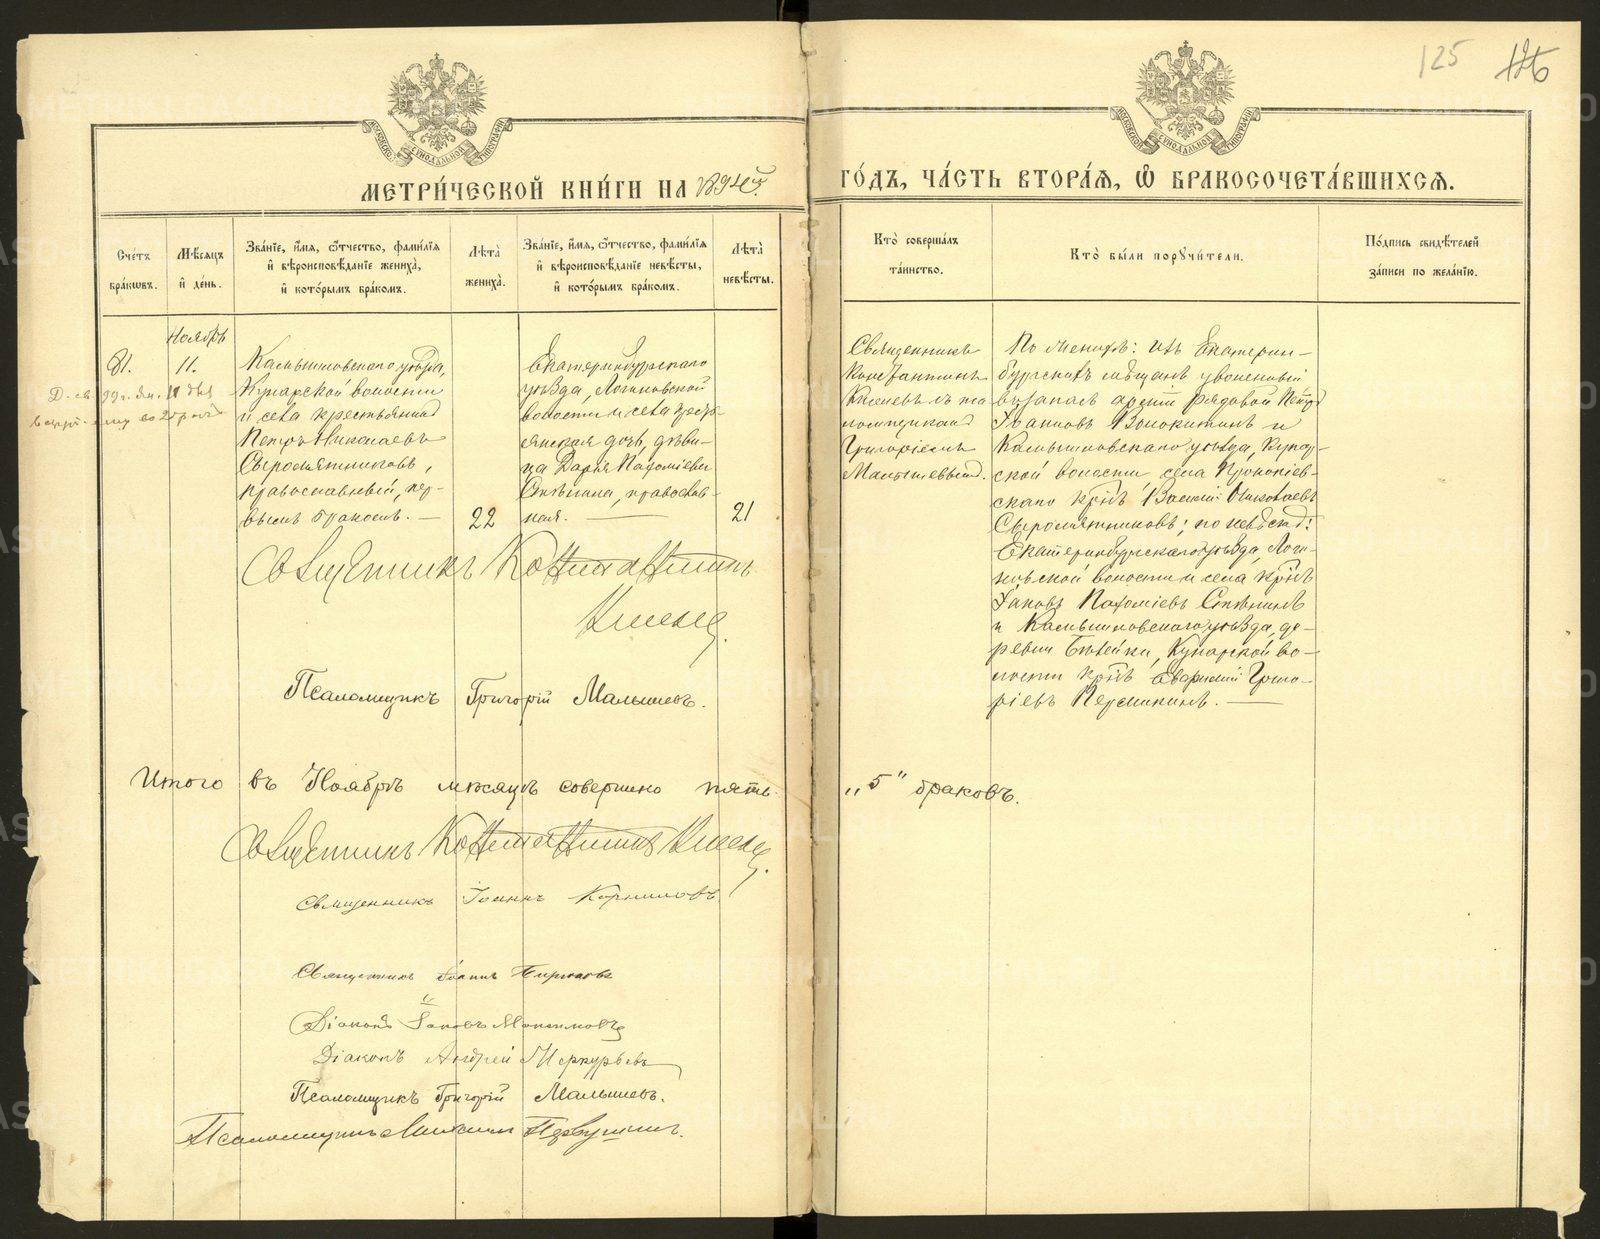 125 126
МЕТРИ́ЧЕСКОЙ КНИ́ГИ НА 1894й ГО́ДЪ, ЧА́СТЬ ВТОРА́Я, Ѿ БРАКОСОЧЕТА́ВШИХСЯ.
Сче́тъ бра́кѡвъ.
Мѣ́сяцъ и҆ де́нь.
Зва́нїе, и҆́мя, ѻ҆́тчество, фами́лїя
и҆ вѣроисповѣ́данїе жениха̀,
и҆ кото́рымъ бра́комъ.
Лѣ́та̀ жениха̀.
Зва́нїе, и҆́мя, ѻ҆́тчество, фами́лїя
и҆ вѣроисповѣ́данїе невѣ́сты,
и҆ кото́рымъ бра́комъ.
Лѣ́та̀ невѣ́сты.
Кто̀ соверша́лъ
та́инство.
Кто̀ бы́ли порꙋчи́тели.
По́дпись свидѣ́телей
за́писи по жела́нїю.
Ноябрь
11.
Камышловскаго уѣзда,
Кунарской волости
и села крестьянинъ
Петръ Николаевъ
Сыромятниковъ,
православный, пер-
вымъ бракомъ. —
22
Екатеринбургскаго
уѣзда, Логиновской
волости и села кресть-
янская дочь, дѣви-
ца Дарья Пахоміева
Стѣнина, православ-
ная. —
21
Священникъ
Константинъ
псаломщикомъ
Григоріемъ
Малышевымъ.
По женихѣ: изъ Екатерин-
бургскихъ мѣщанъ уволенный
въ запасъ арміи рядовой Петръ
Іоанновъ Волокитинъ и
Камышловскаго уѣзда, Кунар-
ской волости села Прокопіев-
скаго крнъ Василій Николаевъ
Сыромятниковъ; по невѣстѣ:
Екатеринбургскаго уѣзда, Логи-
новской волости и села крнъ
Іаковъ Пахоміевъ Стѣнинъ
и Камышловскаго уѣзда, де-
ревни Кунарской во-
лости крнъ Григо-
ріевъ
Священникъ Константинъ
Псаломщикъ Григорій Малышевъ.
Итого въ Ноябрѣ мѣсяцѣ совершено пять „5" браковъ.
Священникъ Константинъ
Священникъ Іоаннъ Корниловъ
Священникъ Іоаннъ
Діаконъ Іаковъ Максимовъ
Діаконъ Андрей Меркурьевъ
Псаломщикъ Григорій Малышевъ.
Псаломщикъ Первушинъ.